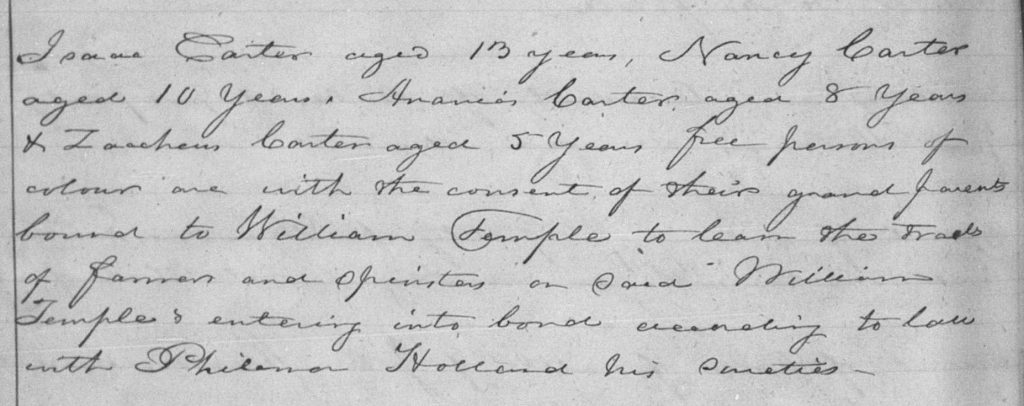 Isaac Carter aged 13 years, Nancy Carter
aged 10 Years, Ananias Carter aged 8 Years
& Zaacheus Carter aged 5 Years free persons of
colour are with the consent of their grand parents
bound to William Temple to learn the trade
of farmers and spinsters on said William
Temple's entering into bond according to law
with Philemon Holland his sureties —